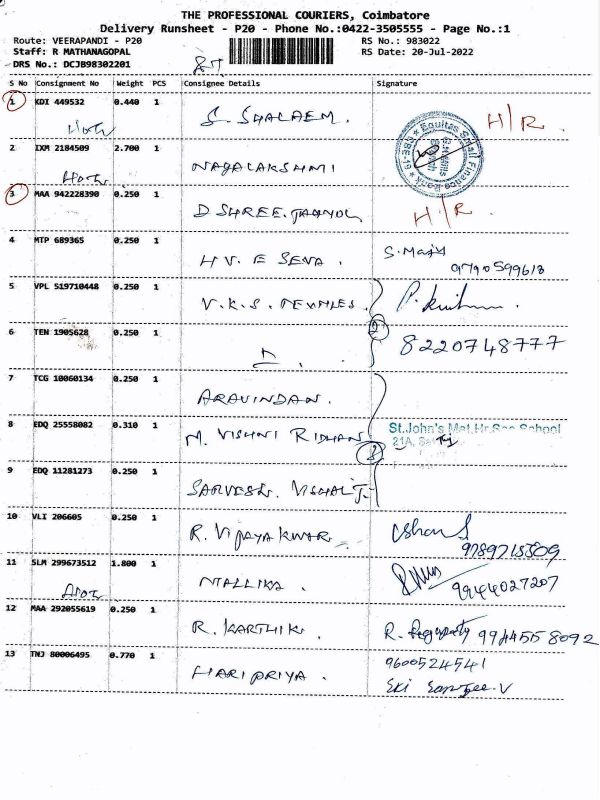 THE PROFESSIONAL COURIERS, Coimbatore
Delivery Runsheet - P20 - Phone No.:0422-3505555 - Page No.:1
Route: VEERAPANDI - P20 RS No.: 983022
Staff: R MATHANAGOPAL RS Date: 20-Jul-2022
DRS No.: DCJB98302201
S No Consignment No Weight PCS Consignee Details Signature
1 KDI 449532 0.440 1 S. SHALAEM. H/R.
Equitas Small Finance Bank
2 IXM 2184509 2.700 1 NAGALAKSHMI
3 MAA 942228390 0.250 1 D SHREE. H/R.
4 MTP 689365 0.250 1 HV. E SEVA. S. Maju
9790599613
5 VPL 519710448 0.250 1 V.K.S. TEXTILES.
2
6 TEN 1905628 0.250 1 8220748777
7 TCG 10060134 0.250 1 ARAVINDAN.
8 EDQ 25558082 0.310 1 M. VISHNI RIDHAN St.John's Mat.Hr.Sec School
3 21A,
9 EDQ 11281273 0.250 1 SARVESH. VISHAL J.
10 VLI 206605 0.250 1 R. VIJAYAKUMAR
9789715309
11 SLM 299673512 1.800 1 MALLIKA. 9944027207
12 MAA 292055619 0.250 1 R. KARTHIK. R. 9944558092
13 TNJ 80006495 0.770 1 HARIPRIYA. 9600524541